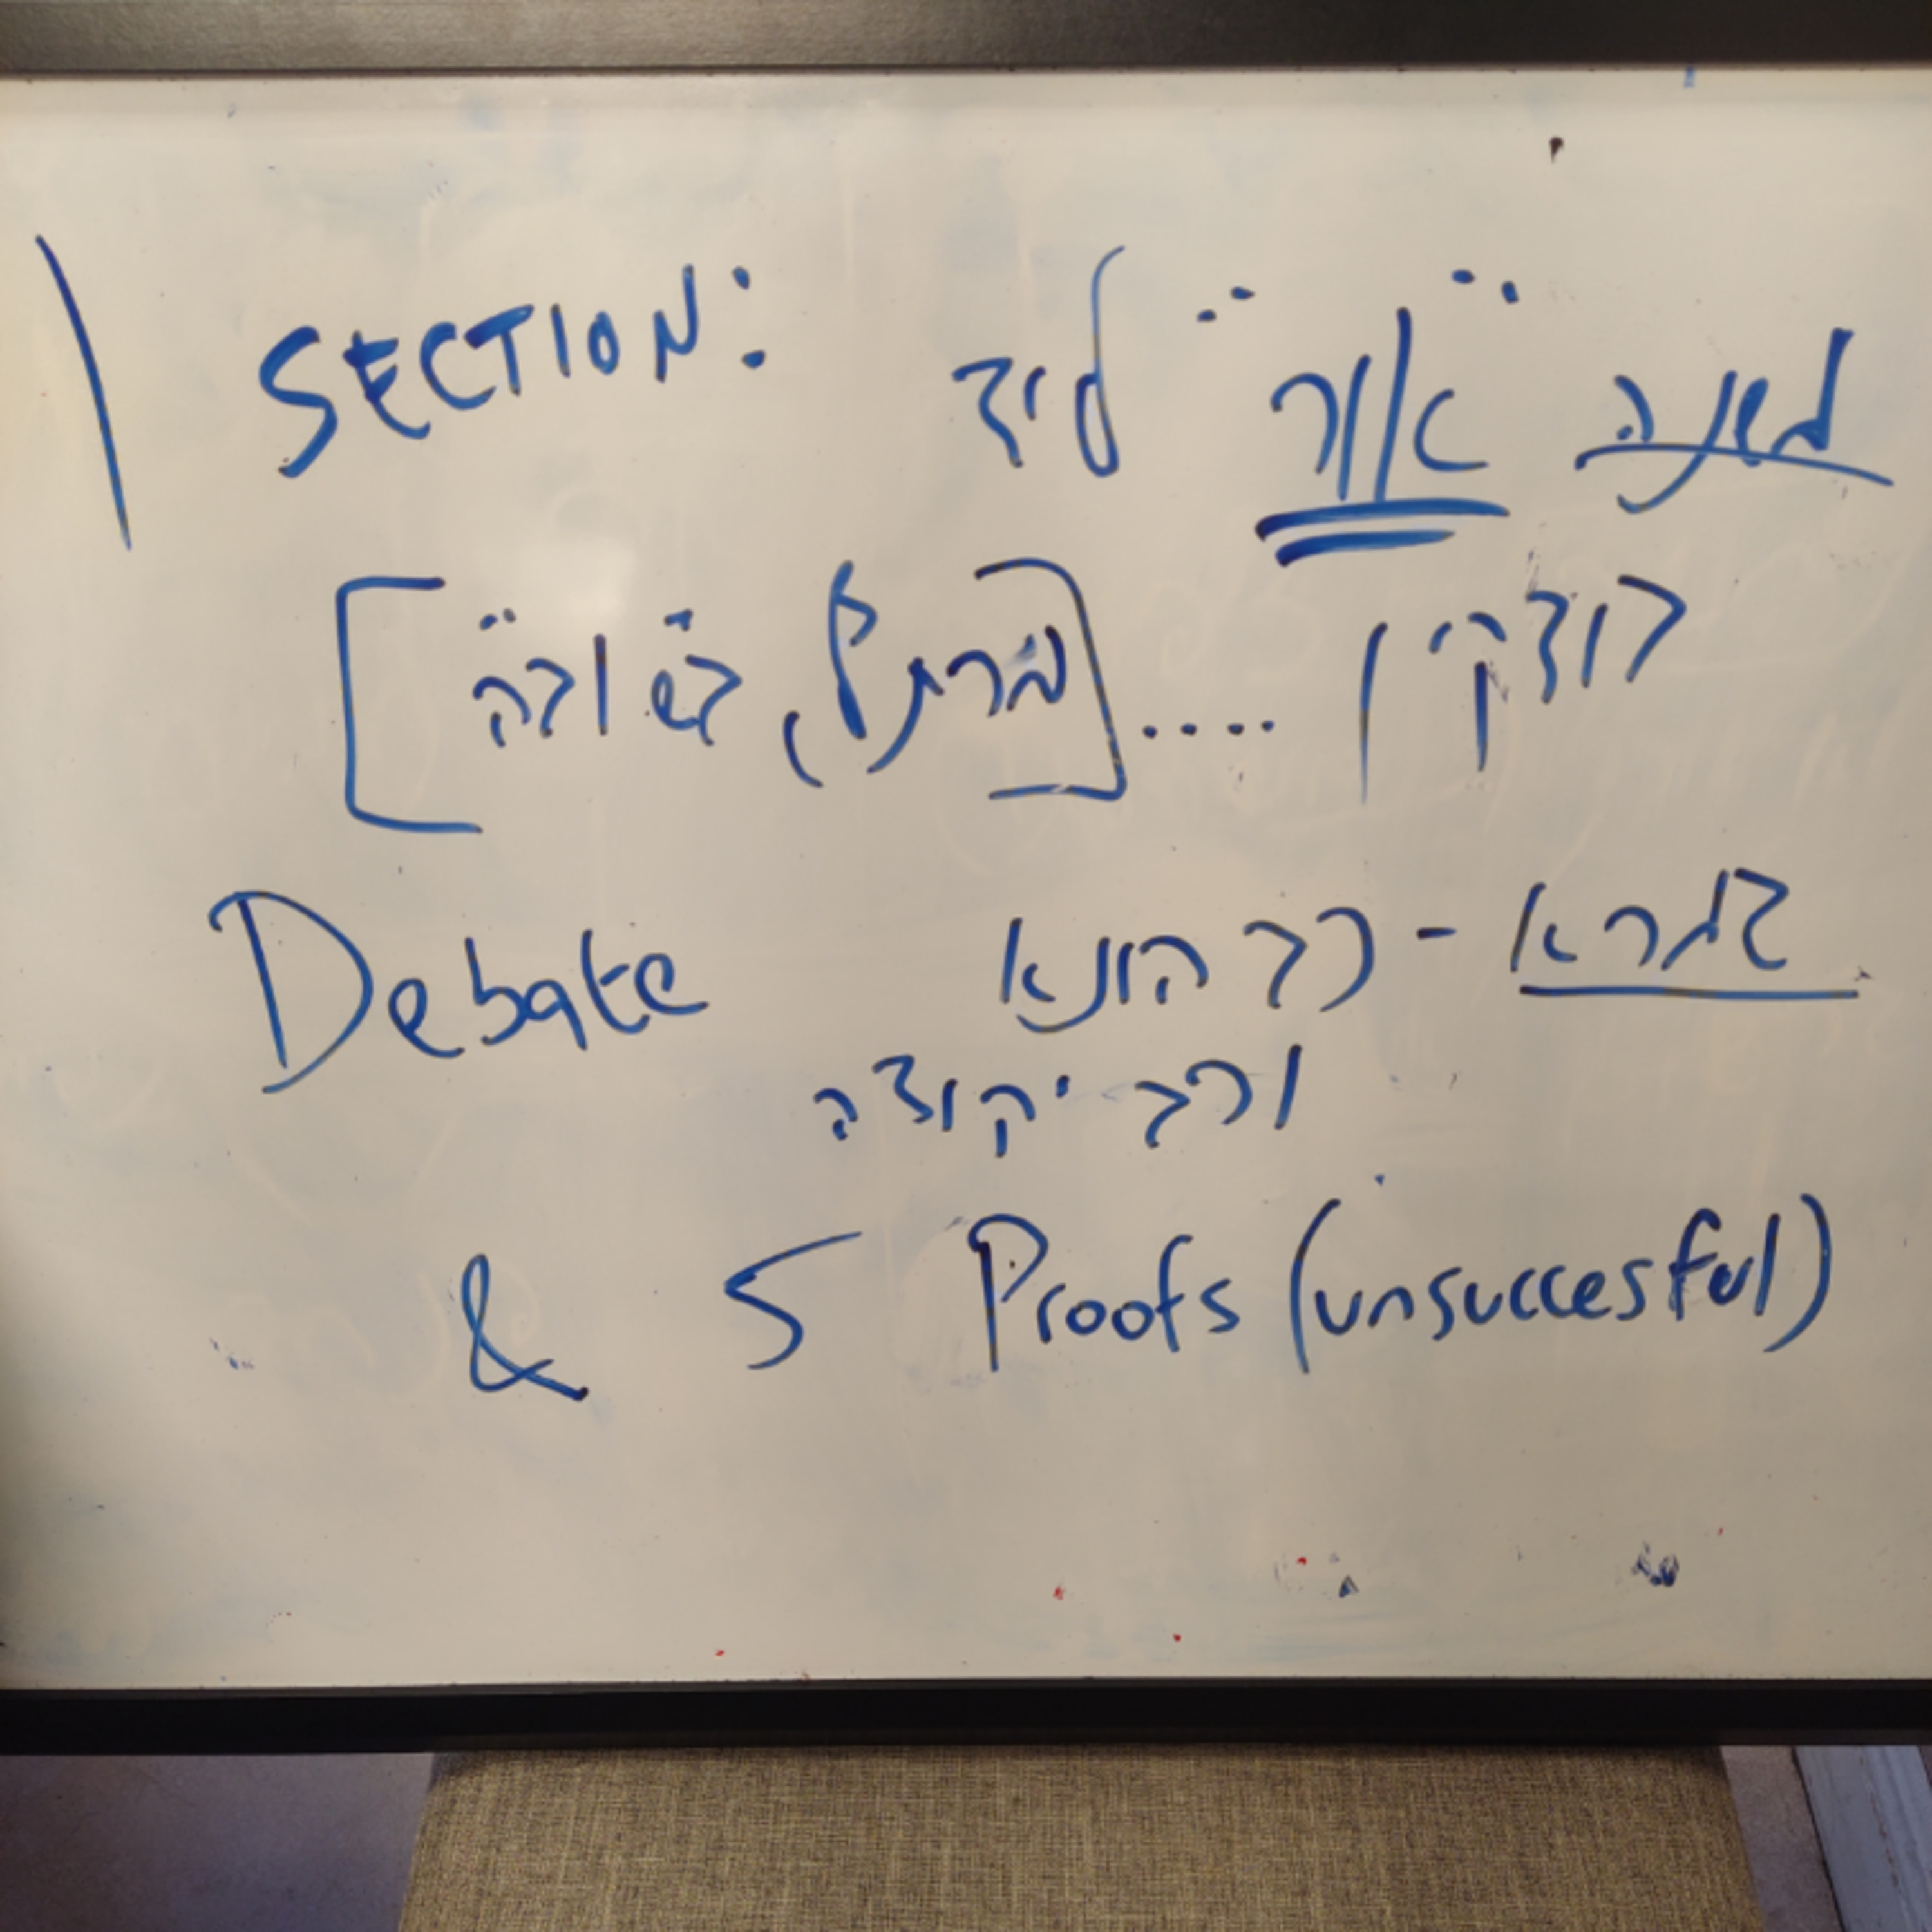 1 SECTION: משנה "אור" ליד
בודקין ....[מרתף, ב"ש וב"ה]
Debate גמרא - רב הונא
ורב יהודה
& 5 Proofs (unsuccesful)